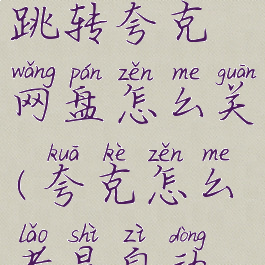 跳转夸克
wǎng pán zěn me guān
网盘怎么关
kuā kè zěn me
(夸克怎么
lǎo shì zì dòng
老是自动